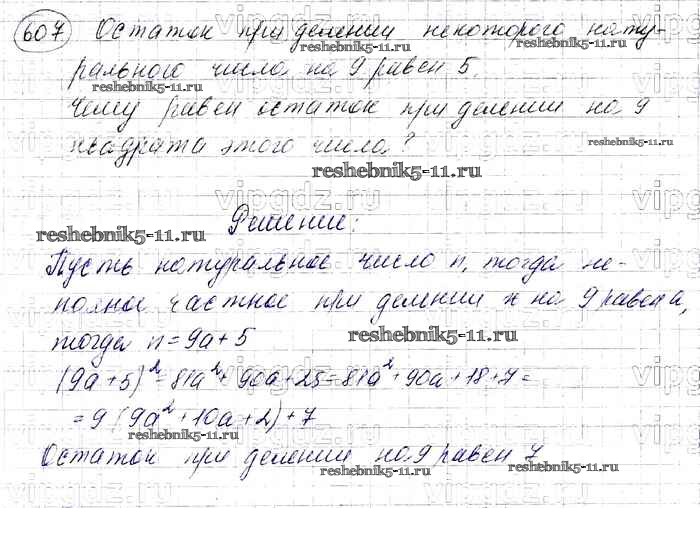 607 Остаток при делении некоторого нату-
рального числа на 9 равен 5.
Чему равен остаток при делении на 9
квадрата этого числа?
Решение:
Пусть натуральное число n, тогда не-
полное частное при делении n на 9 равен a,
тогда n = 9a + 5
(9a + 5)² = 81a² + 90a + 25 = 81a² + 90a + 18 + 7 =
= 9 (9a² + 10a + 2) + 7
Остаток при делении на 9 равен 7
reshebnik5-11.ru
reshebnik5-11.ru
reshebnik5-11.ru
reshebnik5-11.ru
reshebnik5-11.ru
reshebnik5-11.ru
reshebnik5-11.ru
reshebnik5-11.ru
reshebnik5-11.ru
reshebnik5-11.ru
vipgdz.ru